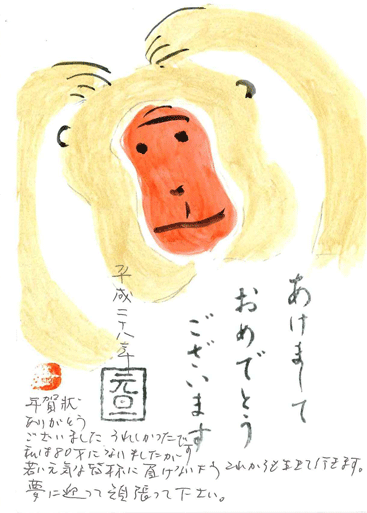 あけまして
おめでとう
ございます
平成二十八年
元旦
年賀状
ありがとう
ございました うれしかったです
私は80才になりましたが
若い元気な 杯に負けないよう これからも生きて行きます。
夢に迎って頑張って下さい。